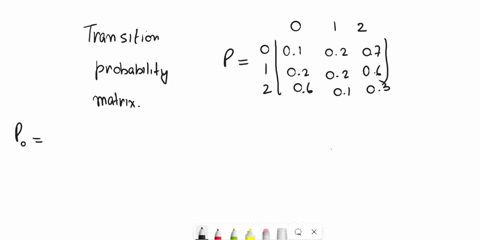 Transition
probability
matrix.
0 1 2
P = 0 0.1 0.2 0.7
1 0.2 0.2 0.6
2 0.6 0.1 0.3
P₀ =